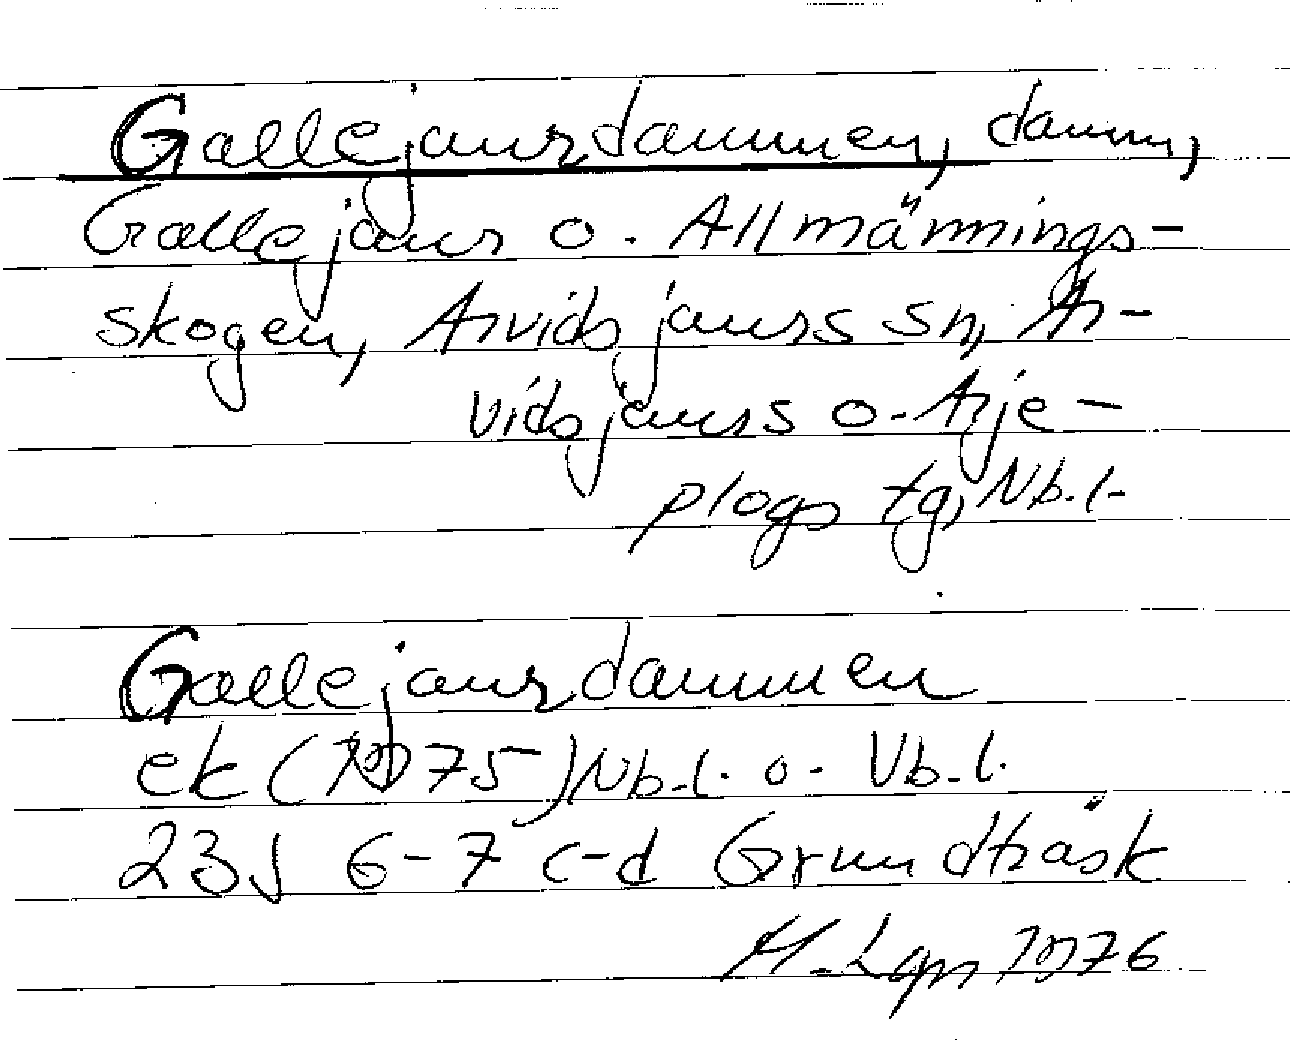 Gallejaurdammen, damm,
Gallejaur o. Allmännings-
skogen, Arvidsjaurs sn, Ar-
vidsjaurs o. Arje-
plogs tg, Nb.l.
Gallejaurdammen
ek (1975) Nb.l. o. Vb.l.
23J 6-7 c-d Grundträsk
1976